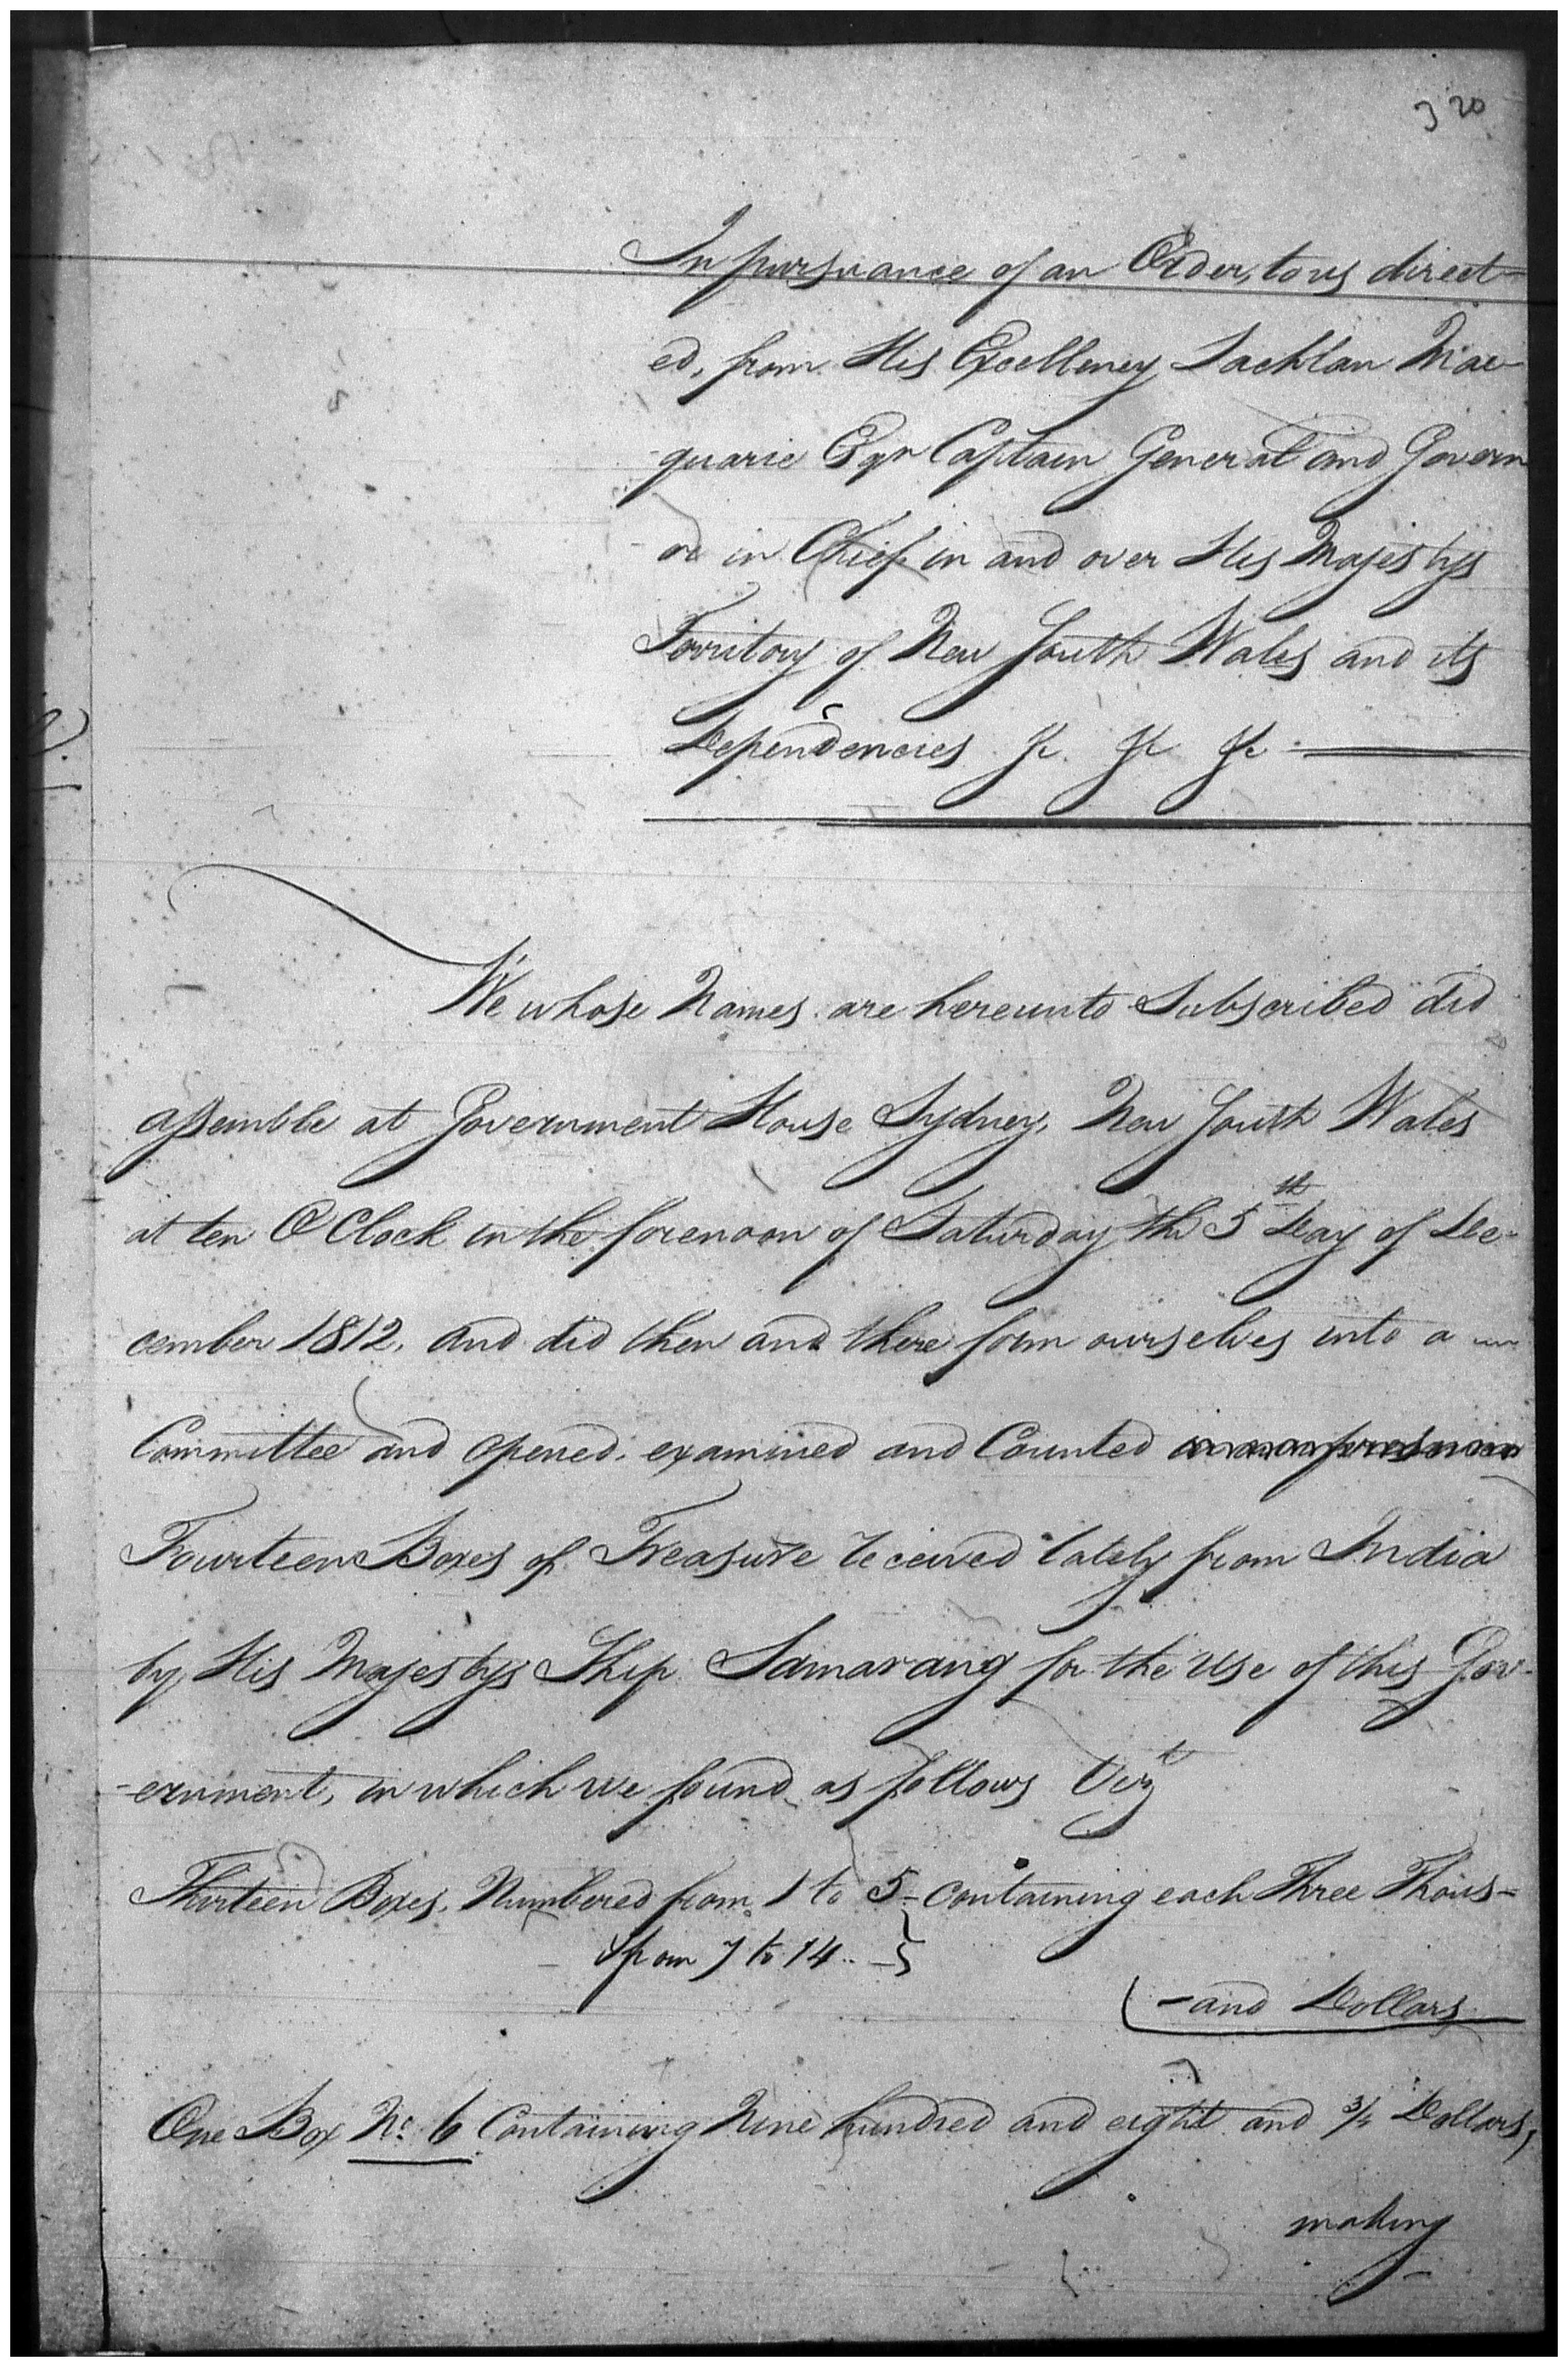 320
In pursuance of an Order, to us direct-
ed, from His Excellency Lachlan Mac-
quarie Esqr Captain General and Govern
-or in Chief in and over His Majestys
Territory of New South Wales and its
Dependencies &c. &c &c
We whose Names are hereunto Subscribed did
assemble at Government House Sydney, New South Wales
at ten O Clock in the forenoon of Saturday the 5th Day of De-
cember 1812, and did then and there form ourselves into a
Committee and opened, examined and Counted
Fourteen Boxes of Treasure received lately from India
by His Majestys Ship Samarang for the Use of this Gov-
-ernment, in which we found as follows Vizt
Thirteen Boxes, Numbered from 1 to 5 - containing each Three Thous-
& from 7 to 14 ..
-and Dollars
One Box No. 6 Containing Nine hundred and eight and 3/4 Dollars,
making